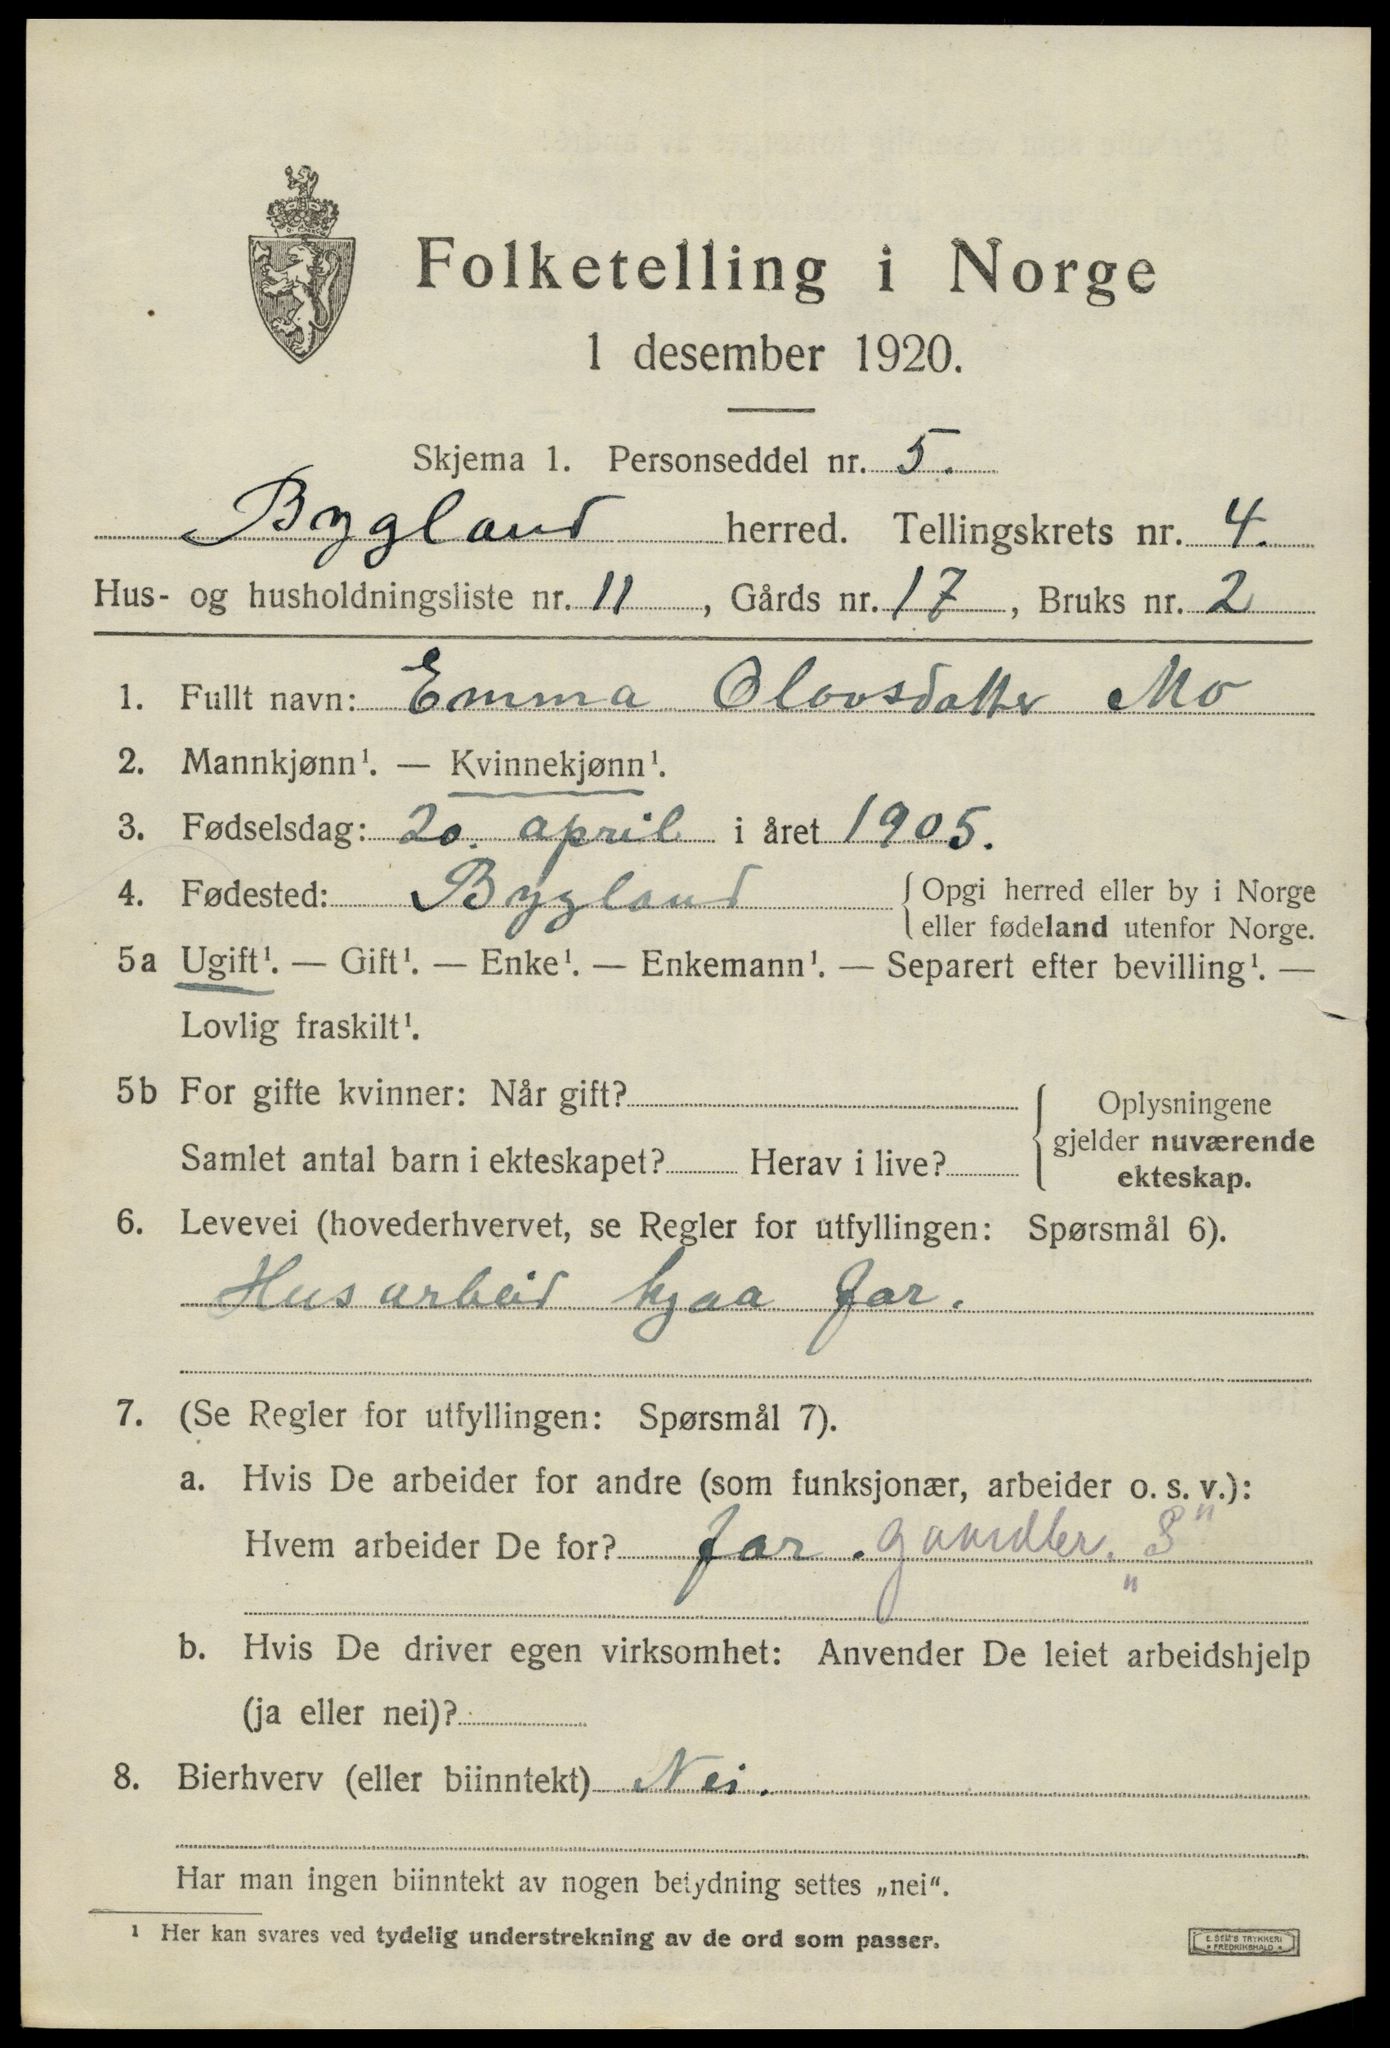 Folketelling i Norge
1 desember 1920.
Skjema 1. Personseddel nr. 5.
Bygland herred. Tellingskrets nr. 4.
Hus- og husholdningsliste nr. 11, Gårds nr. 17, Bruks nr. 2
1. Fullt navn: Emma Olovsdatter Mo
2. Mannkjønn¹. — Kvinnekjønn¹.
3. Fødselsdag: 20. april i året 1905.
4. Fødested: Bygland {Opgi herred eller by i Norge
eller fødeland utenfor Norge.
5a Ugift¹. — Gift¹. — Enke¹. — Enkemann¹. — Separert efter bevilling¹. —
Lovlig fraskilt¹.
5b For gifte kvinner: Når gift?
Samlet antal barn i ekteskapet? Herav i live?
Oplysningene
gjelder nuværende
ekteskap.
6. Levevei (hovederhvervet, se Regler for utfyllingen: Spørsmål 6).
Husarbeid hjaa far.
7. (Se Regler for utfyllingen: Spørsmål 7).
a. Hvis De arbeider for andre (som funksjonær, arbeider o. s. v.):
Hvem arbeider De for? far.
b. Hvis De driver egen virksomhet: Anvender De leiet arbeidshjelp
(ja eller nei)?
8. Bierhverv (eller biinntekt) Nei.
Har man ingen biinntekt av nogen betydning settes „nei“.
¹ Her kan svares ved tydelig understrekning av de ord som passer.
E. SEM'S TRYKKERI
* FREDRIKSHALD *